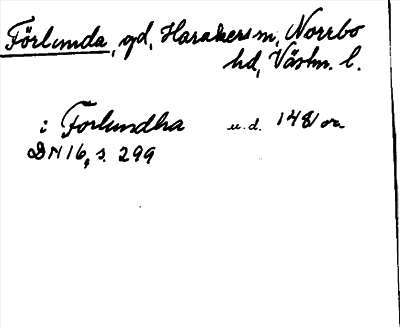 Förlunda, gd, Harakers sn, Norrbo
hd, Västm. l.
i Forlundha u.d. 1481 or.
DN 16, s. 299